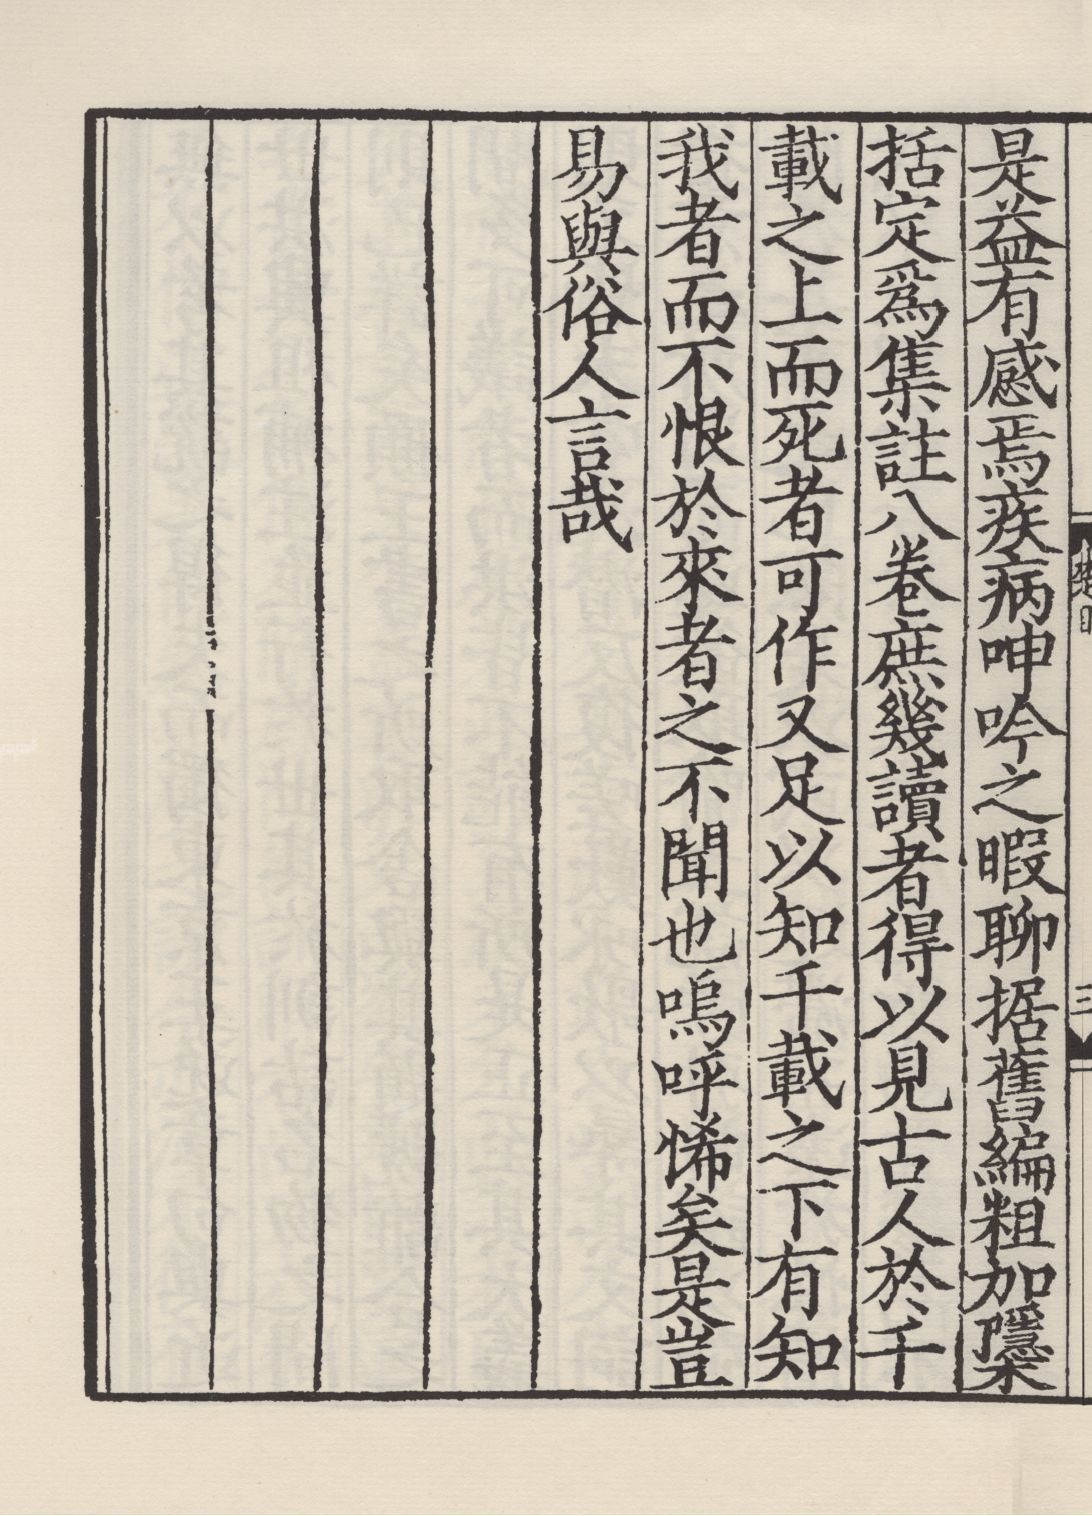 是益有感焉疾病呻吟之暇聊据舊編粗加檃
括定爲集註八卷庶幾讀者得以見古人於千
載之上而死者可作又足以知千載之下有知
我者而不恨於來者之不聞也嗚呼悕矣是豈
易與俗人言哉